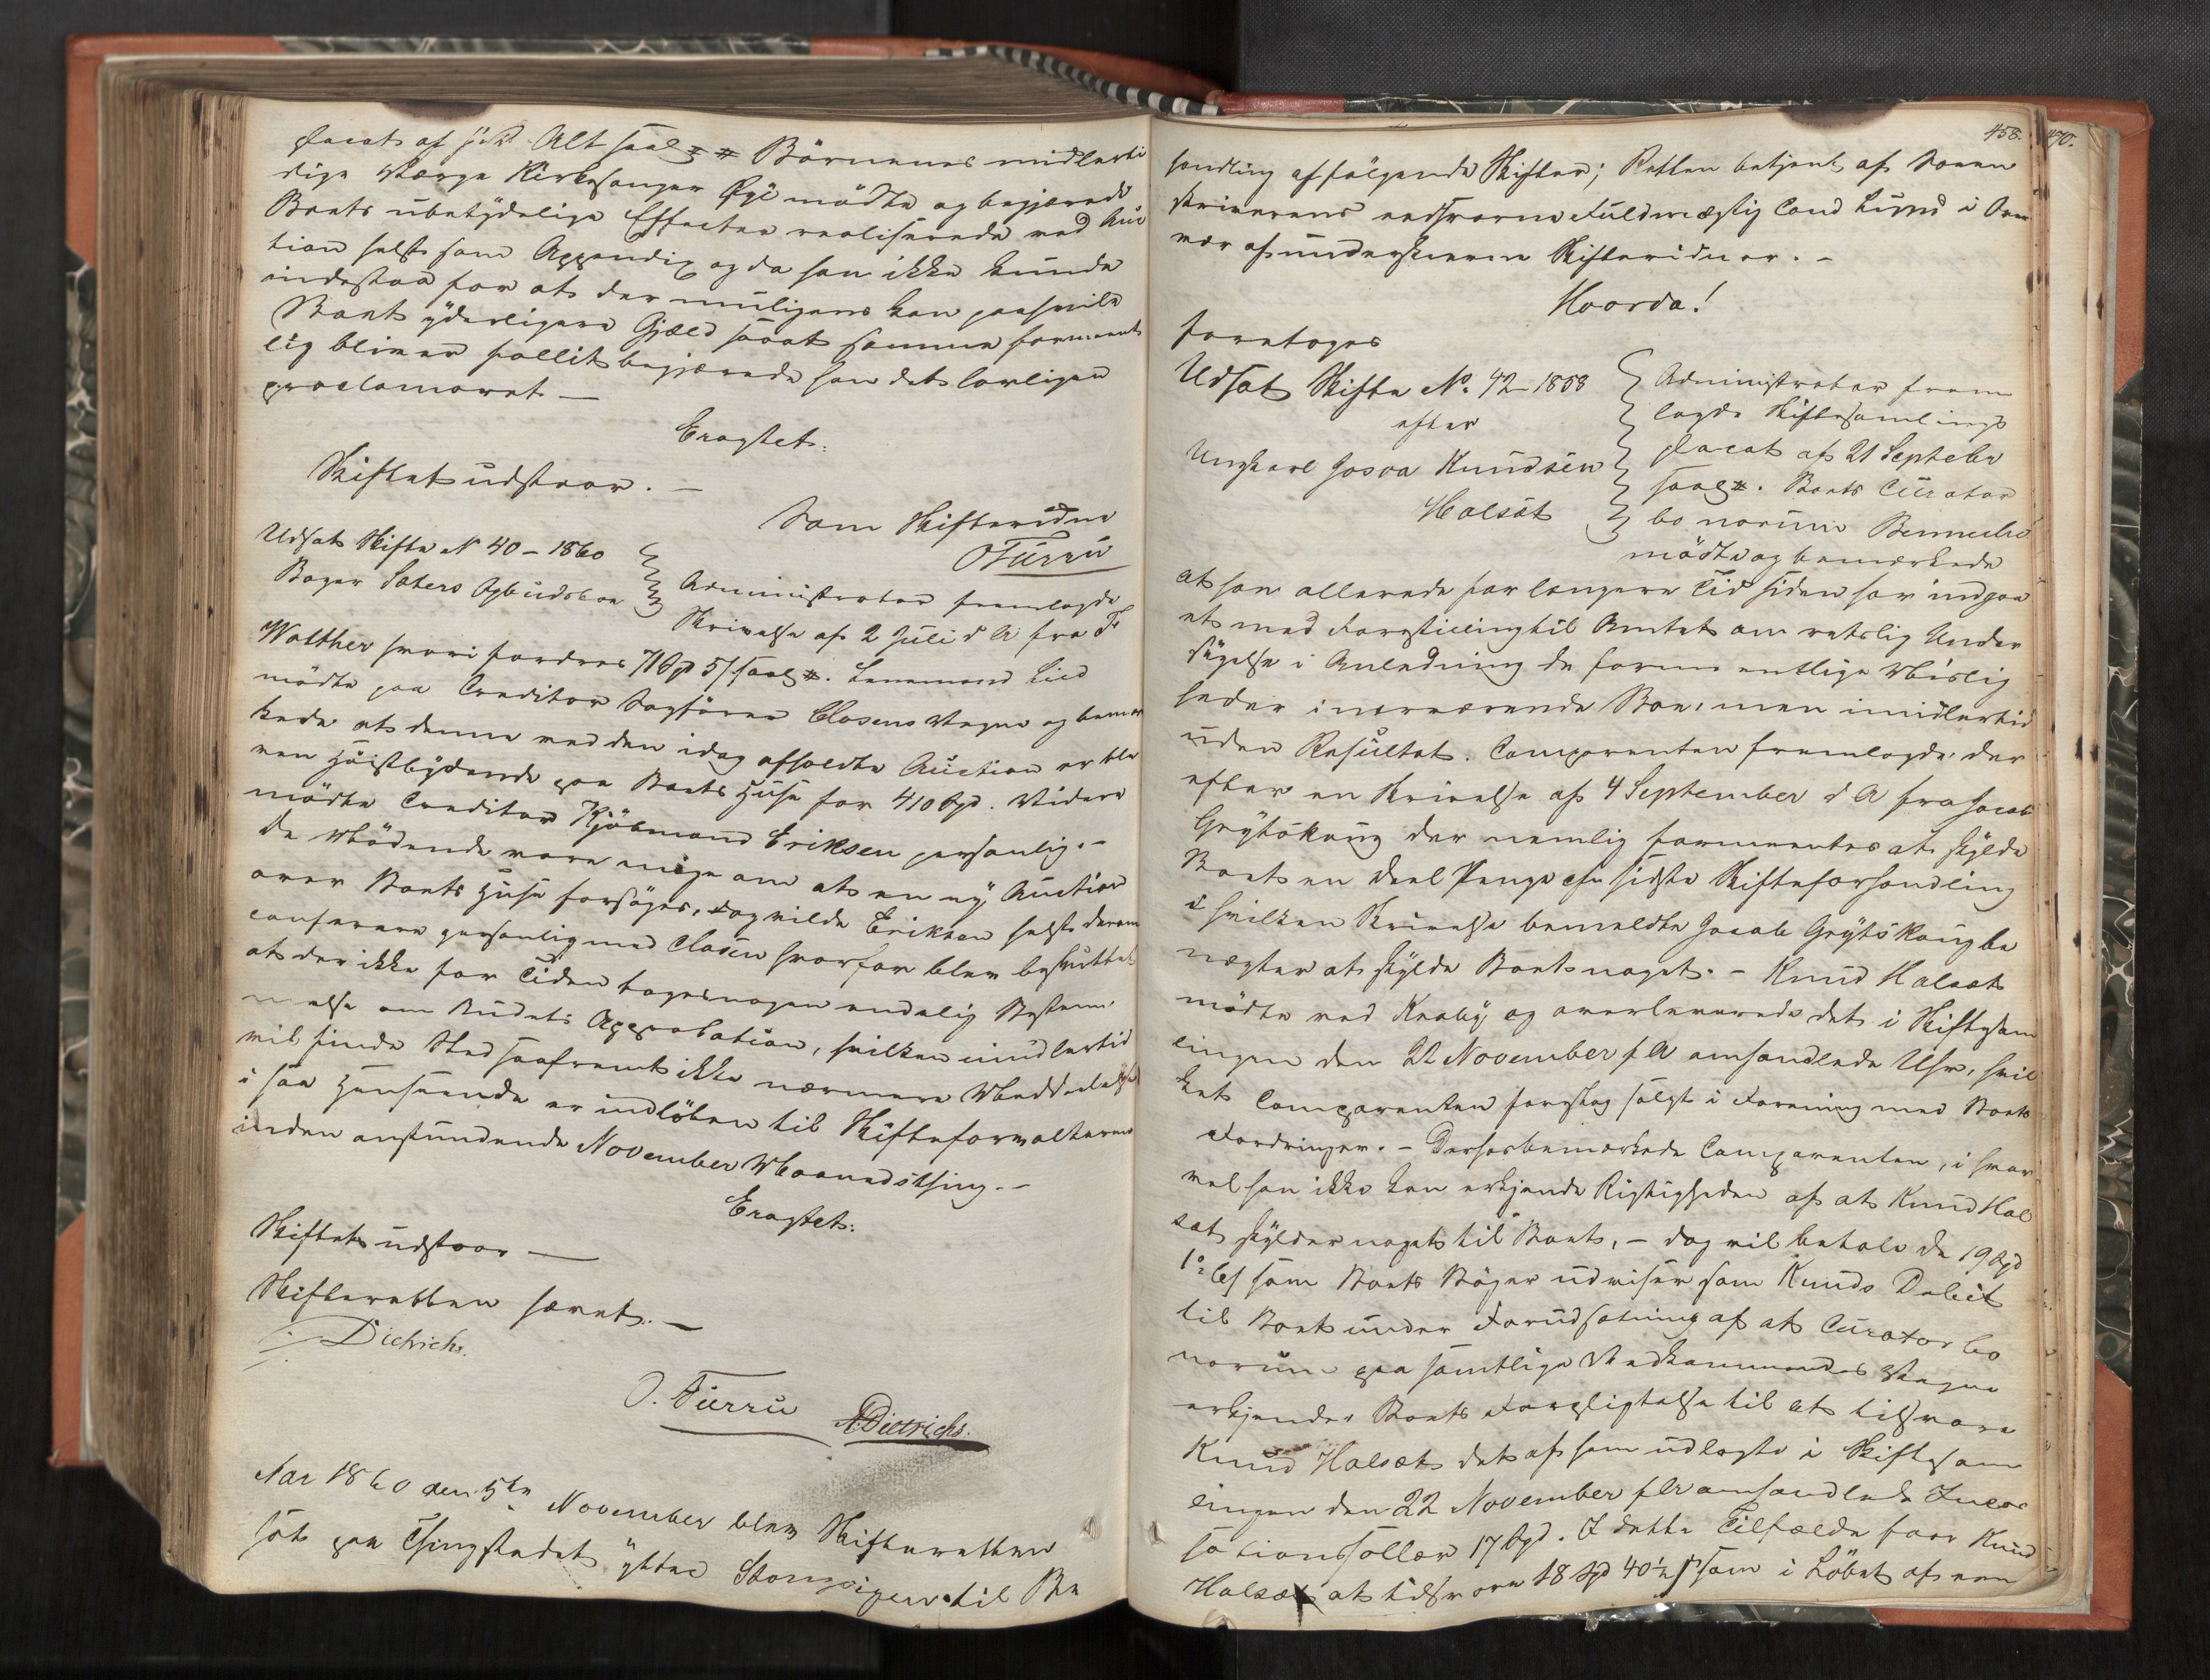 placat af s. D. Alt saal. # Børnenes midlerti
dige Værge Kirkesanger Øye mødte og begjærede
Boets ubetydelige Effecter realiserede ved Auc
tion helst som Appendix og da han ikke kunde
indestaa for at der muligens kan paahvile
Boet yderligere Gjæld saaat samme formeent
lig bliver fallit begjærede han det lovligen
proclameret —
Eragtet:
Skiftet udstaar. —
Som Skiftevidne
O Furru
Udsat Skifte N 40 – 1860
Administrator fremlagde
Skrivelse af 2 Juli d A fra Fr
Walther hvori fordres 71 Spd 5 s saal. #. Lensmand Lied
mødte paa Creditor Sagfører Closens Vegne og bemær
kede at denne ved den idag afholdte Auction er ble
ven Høistbydende paa Boets Huse for 410 Spd. Videre
mødte Creditor Kjøbmand Eriksen personlig. –
De Mødende vare enige om at en ny Auction
over Boets Huse forsøges, dog vilde Eriksen helst derom
conferere personlig med Closen hvorfor blev besluttet
at der ikke for Tiden toges nogen endelig Bestem
melse om Budets Approbation, hvilken imidlertid
vil finde Sted saafremt ikke nærmere Meddelelse
i saa Henseende er indløben til Skifteforvalteren
inden anstundende November Maanedsthing. –
Eragtet:
Skiftet udstaar —
Skifteretten hævet. —
Dietrichs.
O. Furru
A Dietrichs.
Aar 1860 den 5te November blev Skifteretten
sat paa Thingstedet ÿttre Stangvigen til Be
458.
470.
handling af følgende Skifter; Retten betjent af Soren
skriverens edsvorne Fuldmægtig Cand Lund i Over
vær af underskrevne Skiftevidner. –
Hvorda!
foretoges
Udsat Skifte No. 42 – 1858
efter
Ungkarl Josva Knudsen
Halsæt
Administrator frem
lagde Skiftesamlings
placat af 21 Septebr
saal. #. Boets Curator
bo norum Bennecke
mødte og bemærkede
at han allerede for længere Tid siden har indgaa
et med Forestilling til Amtet om retslig Under
søgelse i Anledning de formeentlige Mislig
heder i nærværende Boe, men imidlertid
uden Resultat. Comparenten fremlagde der
efter en Skrivelse af 4 September d A fra Jacob
Grÿtskoug der nemlig formeentes at skylde
Boet en Deel Penge cfr sidste Skifteforhandling
i hvilken Skrivelse bemeldte Jacob Grÿtskoug be
nægter at skylde Boet noget. – Knud Halsæt
mødte ved Kaaby og overleverede det i Skiftesam
lingen den 22 November f A omhandlede Uhr, hvil
ket Comparenten foreslog solgt i Forening med Boets
Fordringer. – Derhos bemærkede Comparenten, i hvor
vel han ikke kan erkjende Rigtigheden af at Knud Hal
sæt skylder noget til Boet, – dog vil betale de 19 Spd
som Boets Bøger udviser som Knuds Debet
til Boet under Forudsætning af at Curator bo
norum paa samtlige Vedkommendes Vegne
erkjender Boets Forpligtelse til at tilsvare
Knud Halsæt det af ham udlagte i Skiftesam
lingen den 22 November f A omhandlede Incas
sationssallær 17 Spd. I dette Tilfælde faar Knud
Halsæt at tilsvare 18 Spd 40½ s som i Løbet af een